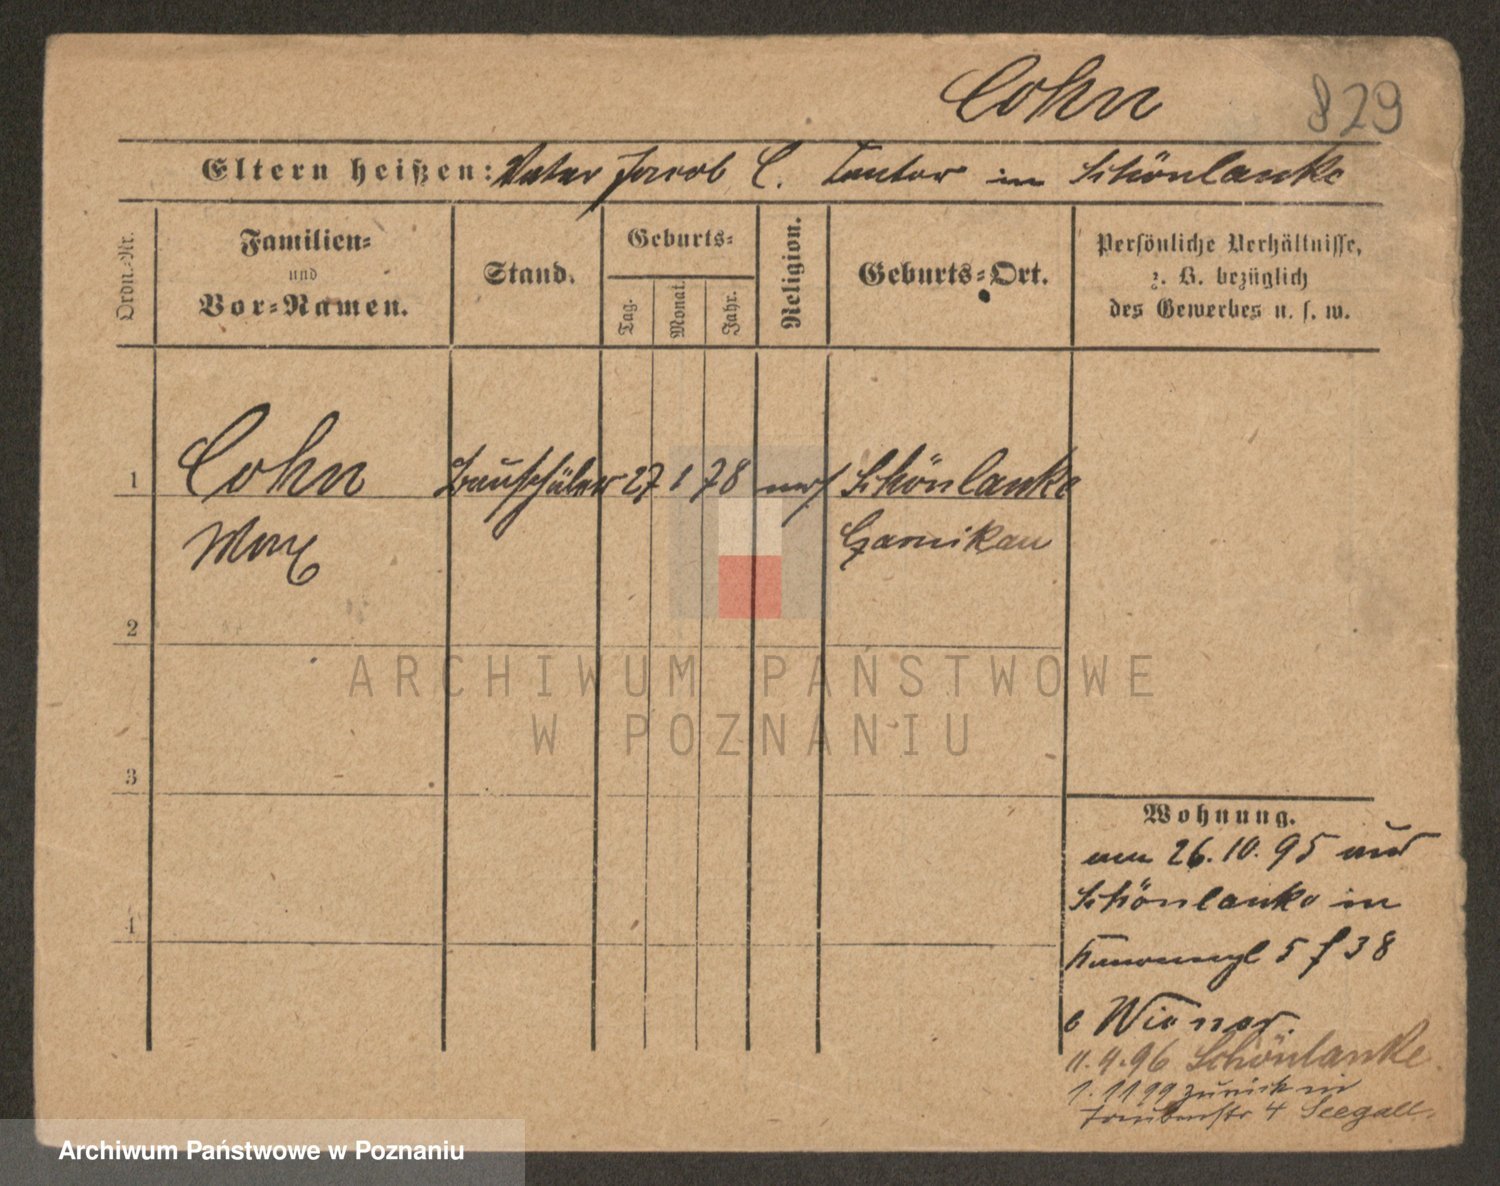 Cohn 829
Eltern heißen: Vater Jacob C. Cantor in Schönlanke
Ordn.-Nr.
Familien-
und
Vor-Namen.
Stand.
Geburts-
Tag.
Monat.
Jahr.
Religion.
Geburts-Ort.
Persönliche Verhältnisse,
z. B. bezüglich
des Gewerbes u. s. w.
1 Cohn Bauschüler 27 1 78 mos Schönlanke
Max Czarnikau
2
3
4
Wohnung.
am 26.10.95 aus
Schönlanke in
5 f 38
b Wiener.
11.4.96 Schönlanke.
1.11 99 zurück in
Taubenstr 4 Seegall.
ARCHIWUM PAŃSTWOWE
W POZNANIU
Archiwum Państwowe w Poznaniu